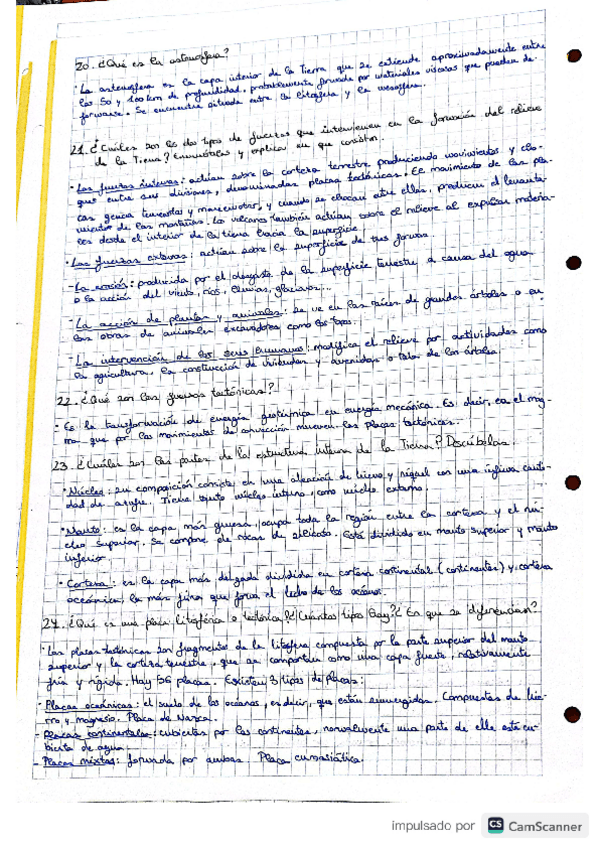 20. ¿Qué es la astenosfera?
· La astenosfera es la capa inferior de la Tierra que se extiende aproximadamente entre
los 50 y 200 km de profundidad, probablemente formada por materiales viscosos que pueden de-
formarse. Se encuentra situada entre la litosfera y la mesosfera.
21. ¿Cuáles son los dos tipos de fuerzas que intervienen en la formación del relieve
de la Tierra? Enuméralas y explica en qué consisten.
· Las fuerzas internas: actúan sobre la corteza terrestre produciendo movimientos y cho-
ques entre sus divisiones, denominadas placas tectónicas. El movimiento de las pla-
cas genera terremotos y maremotos, y cuando se chocan entre ellas, producen el levanta-
miento de las montañas. Los volcanes también actúan sobre el relieve al expulsar materia-
les desde el interior de la tierra hacia la superficie.
· Las fuerzas externas: actúan sobre la superficie de tres formas.
- La erosión: producida por el desgaste de la superficie terrestre a causa del agua
o la acción del viento, ríos, lluvias, glaciares...
- La acción de plantas y animales: Se ve en las raíces de grandes árboles o en
las obras de animales excavadores como los topos.
- La intervención de los seres humanos: modifica el relieve por actividades como
la agricultura, la construcción de viviendas y avenidas o tala de los árboles.
22. ¿Qué son las fuerzas tectónicas?
· Es la transformación de energía geotérmica en energía mecánica. Es decir, es el mag-
ma que por los movimientos de convección mueven las placas tectónicas.
23. ¿Cuáles son las partes de la estructura interna de la Tierra? Descríbelas.
· Núcleo: su composición consiste en una aleación de hierro y níquel con una ínfima canti-
dad de azufre. Tiene tanto núcleo interno, como núcleo externo.
· Manto: es la capa más gruesa, ocupa toda la región entre la corteza y el nú-
cleo superior. Se compone de rocas de silicato. Está dividido en manto superior y manto
inferior
· Corteza: es la capa más delgada dividida en corteza continental (continentes) y corteza
oceánica, la más fina que forma el lecho de los océanos.
24. ¿Qué es una placa litosférica o tectónica? ¿Cuántos tipos hay? ¿En que se diferencian?
· Las placas tectónicas son fragmentos de la litosfera compuesta por la parte superior del manto
superior y la corteza terrestre, que se comportan como una capa fuerte, relativamente
fría y rígida. Hay 56 placas. Existen 3 tipos de placas:
- Placas oceánicas: el suelo de los océanos, es decir, que están sumergidas. Compuestas de hie-
rro y magnesio. Placa de Nazca.
- Placas continentales: cubiertas por los continentes, normalmente una parte de ella está cu-
bierta de agua.
- Placas mixtas: formada por ambas. Placa euroasiática.
impulsado por CS CamScanner